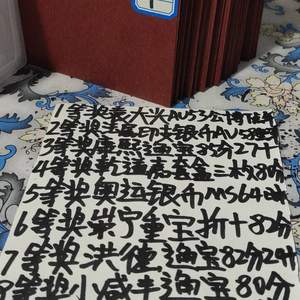 1等奖袁大头AU53公博
2等奖法属印支银币AU58
3等奖康熙通宝85分27十
4等奖乾隆套盒三枚80分
5等奖奥运银币MS64
6等奖崇宁重宝折十82分
7等奖洪德通宝82分24
8等奖小咸丰通宝80分